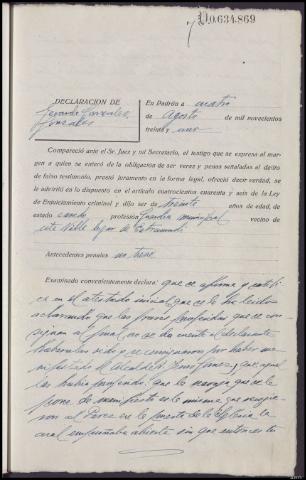 D.0.634.869
DECLARACION DE
Gerardo González
González
En Padrón a cuatro
de Agosto de mil novecientos
treinta y uno
Compareció ante el Sr. Juez y mi Secretario, el testigo que se expresa al mar-
gen a quien se enteró de la obligación de ser veraz y penas señaladas al delito
de falso testimonio, prestó juramento en la forma legal, ofreció decir verdad, se
le advirtió en lo dispuesto en el artículo cuatrocientos cuarenta y seis de la Ley
de Enjuiciamiento criminal y dijo ser de treinta años de edad, de
estado casado, profesión Guardia municipal vecino de
esta Villa lugar de Extramundi
Antecedentes penales no tiene
Examinado convenientemente declara: que se afirma y ratifi-
ca en el atestado inicial que se le ha leido
aclarando que las frases proferidas que se con-
signan al final no se da cuenta el declarante
haberlas oido y se consignaron por haber ma-
nifestado el Alcalde que aquel
las habia proferido. Que la navaja que se le
pone de manifiesto es la misma que ocupa-
ron al Perez en la puerta de la Iglesia la
cual empuñaba abierta sin que entonces